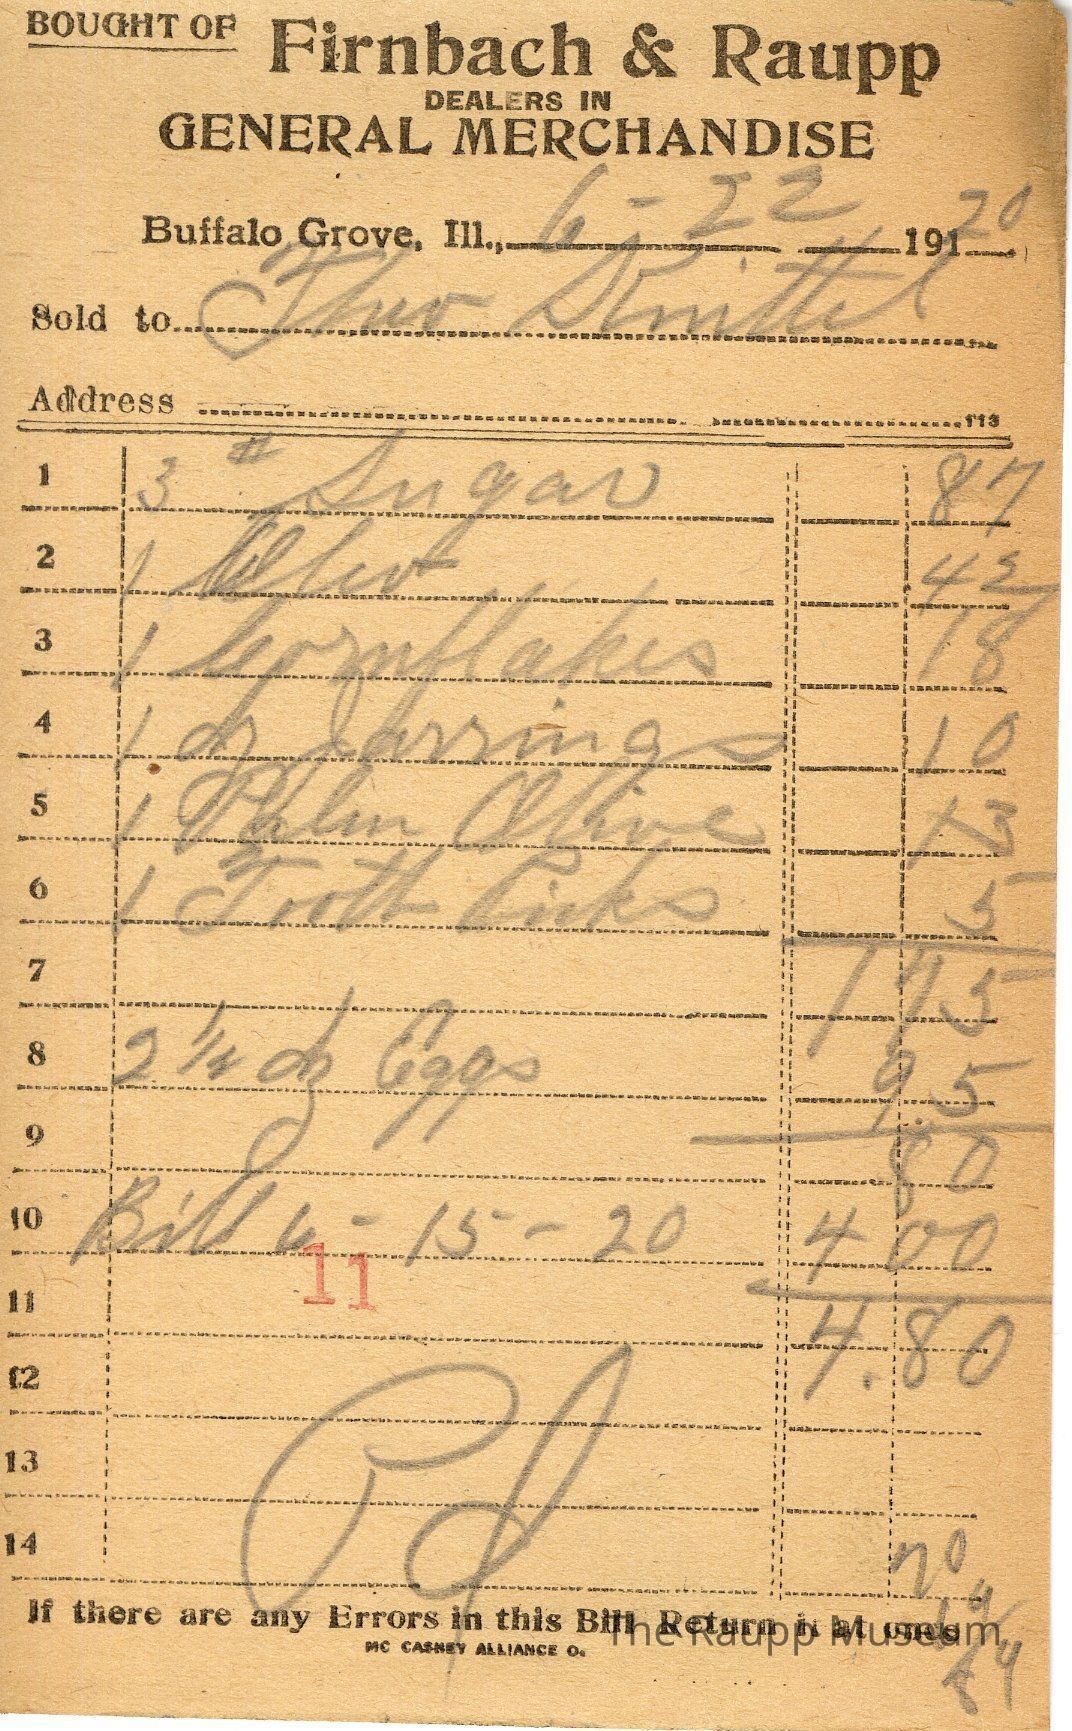 BOUGHT OF Firnbach & Raupp
DEALERS IN
GENERAL MERCHANDISE
Buffalo Grove, Ill., 6-22 191 20
Sold to Theo
Address 113
1 3 # Sugar 87
2 1 42
3 1 Cornflakes 18
4 1 dz Jarrings 10
5 1 Palm Olive 13
6 1 Tooth Picks 5
7 1 75
8 2 1/4 dz Eggs 95
9 80
10 Bill 6-15-20 4 00
11
11 4.80
12
13
14
Pd
70
14
84
If there are any Errors in this Bill Return it at once
MC CASKEY ALLIANCE O.
The Raupp Museum